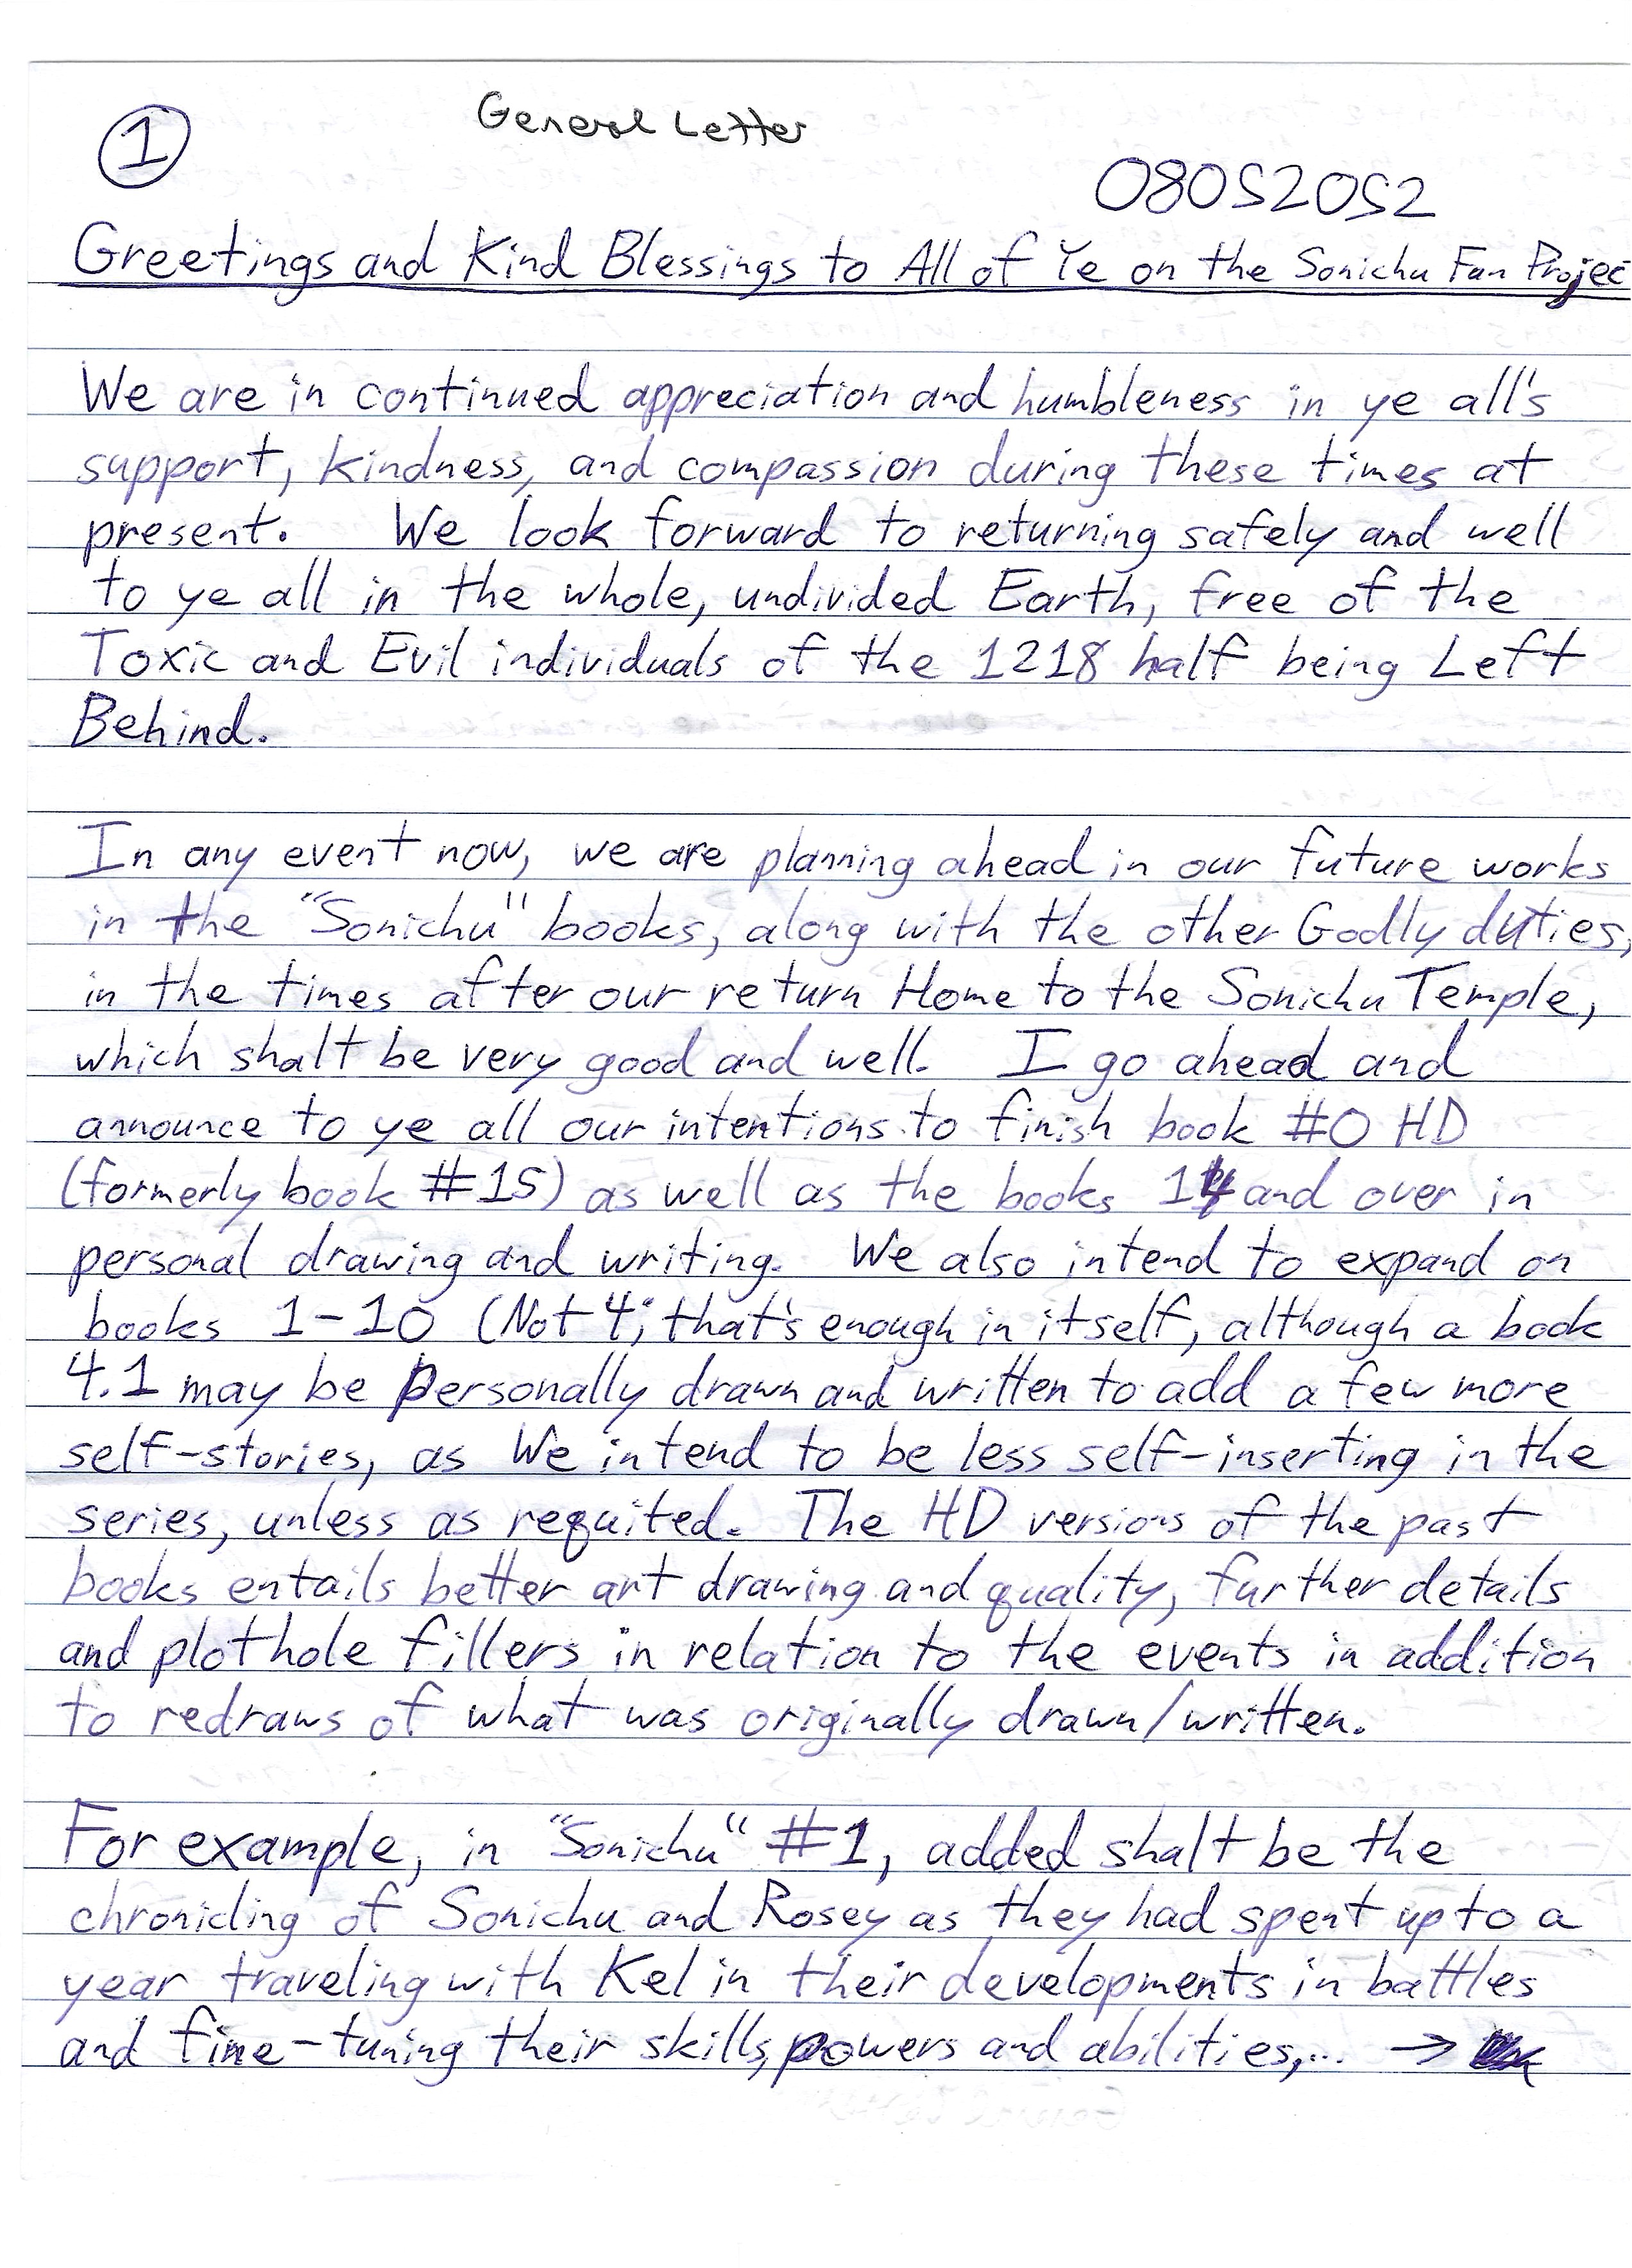 General Letter
1
080S20S2
Greetings and Kind Blessings to All of Ye on the Sonichu Fan Projec
We are in continued appreciation and humbleness in ye all's
support, kindness, and compassion during these times at
present. We look forward to returning safely and well
to ye all in the whole, undivided Earth, free of the
Toxic and Evil individuals of the 1218 half being Left
Behind.
In any event now, we are planning ahead in our future works
in the "Sonichu" books, along with the other Godly duties,
in the times after our return Home to the Sonichu Temple,
which shalt be very good and well. I go ahead and
announce to ye all our intentions to finish book #0 HD
(formerly book #15) as well as the books 14 and over in
personal drawing and writing. We also intend to expand on
books 1-10 (Not 4; that's enough in itself, although a book
4.1 may be personally drawn and written to add a few more
self-stories, as We intend to be less self-inserting in the
series, unless as requited. The HD versions of the past
books entails better art drawing and quality, further details
and plothole fillers in relation to the events in addition
to redraws of what was originally drawn/written.
For example, in "Sonichu" #1, added shalt be the
chronicling of Sonichu and Rosey as they had spent up to a
year traveling with Kel in their developments in battles
and fine-tuning their skills, powers and abilities,... →